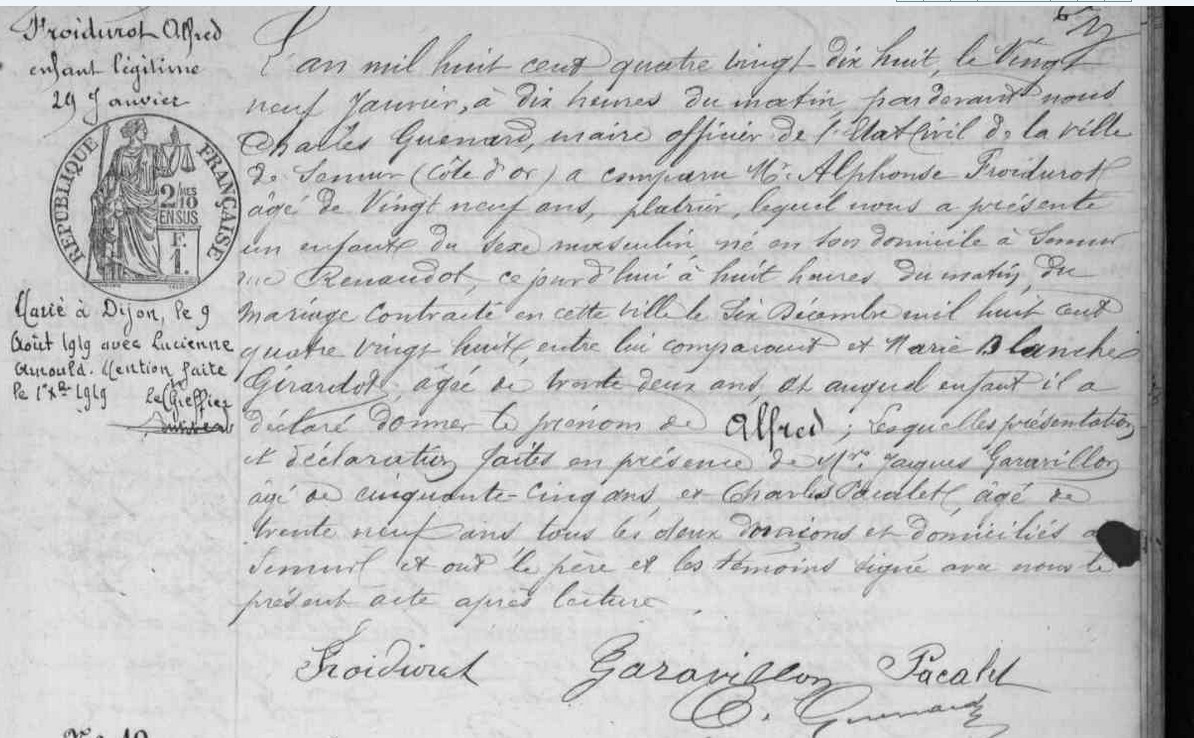 Froidurot Alfred
enfant légitime
29 Janvier
RÉPUBLIQUE FRANÇAISE
2/10 MES
EN SUS
F.
1.
Marié à Dijon, le 9
Août 1919 avec Lucienne
Arnould. Mention faite
le 1919 le Greffier
L'an mil huit cent quatre vingt-dix huit, le Vingt
neuf Janvier, à dix heures du matin, pardevant nous
Charles Guenard, maire officier de l'Etat Civil de la ville
de Semur (Côte d'or) a comparu Mr. Alphonse Froidurot
âgé de Vingt neuf ans, platrier, lequel nous a présenté
un enfant du sexe masculin, né en son domicile à Semur
rue Renaudot, ce jourd'hui à huit heures du matin, du
mariage contracté en cette ville le Six Décembre mil huit cent
quatre vingt huit, entre lui comparant et Marie Blanche
Girardot, âgée de trente deux ans, et auquel enfant il a
déclaré donner le prénom de Alfred ; Lesquelles présentation
et déclaration faites en présence de Mrs. Jacques Garavillon
âgé de cinquante-cinq ans, et Charles Pacalet, âgé de
trente neuf ans tous les deux et domiciliés à
Semur et ont le père et les témoins signé avec nous le
présent acte après lecture.
Froidurot Garavillon Pacalet
C. Guenard